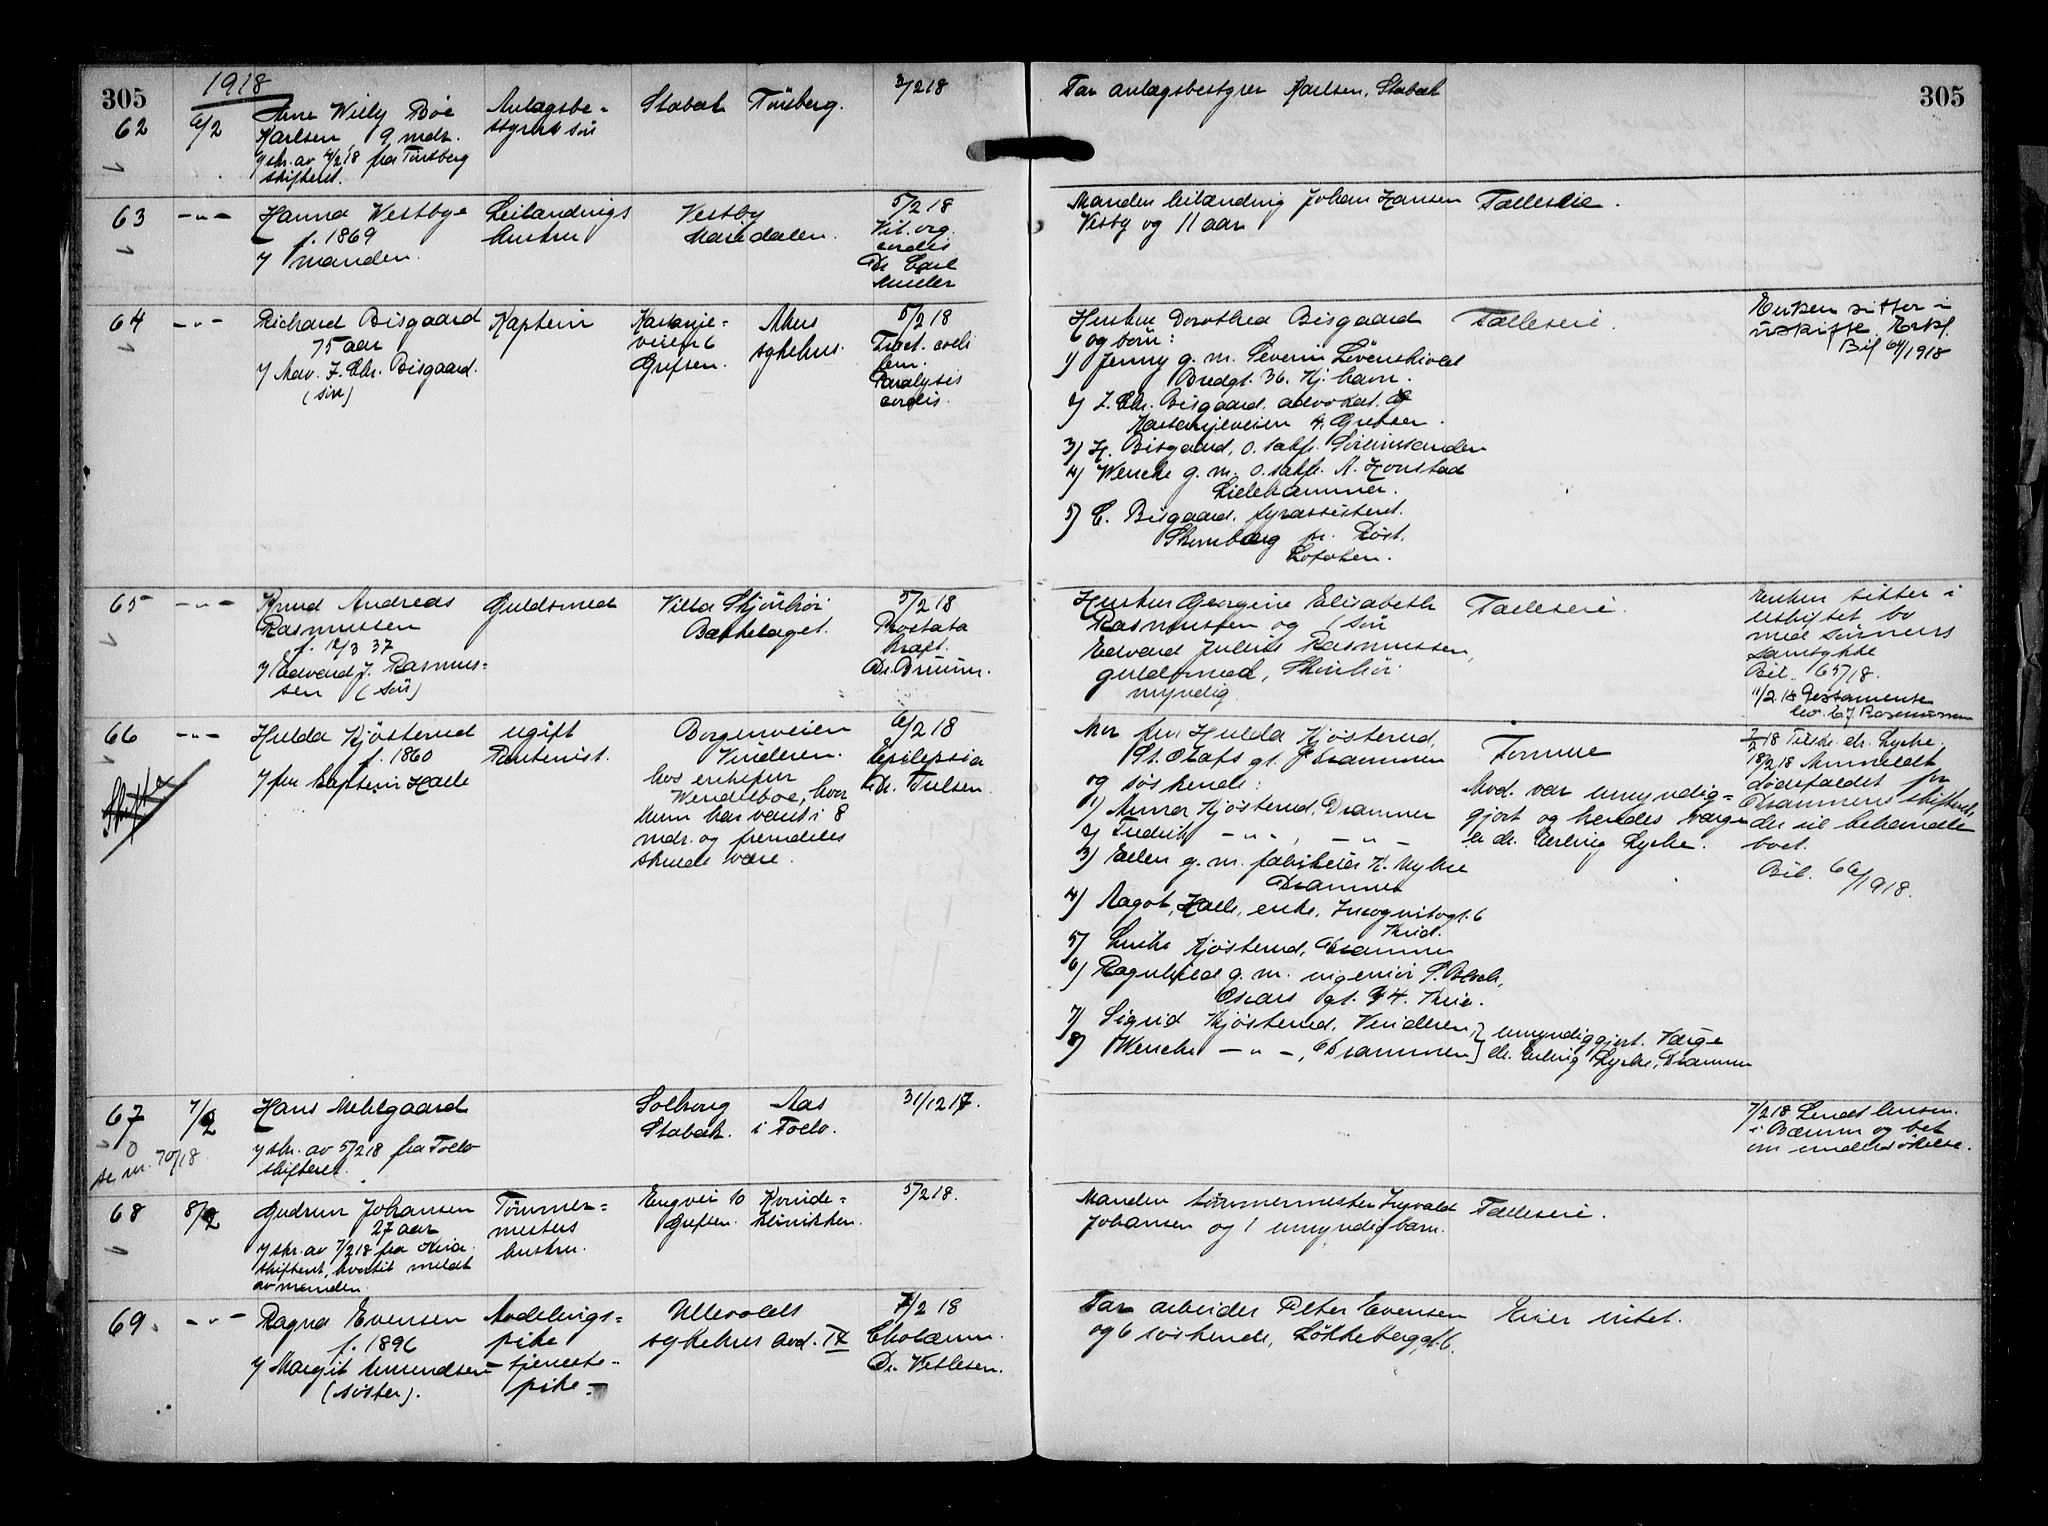 305
1918
62
6/2
Arne Willy Bøe
Karlsen 9 mdr.
skr. av 4/2 18 fra Tønsberg
skifteret.
Anlægsbe-
styrers søn
Stabæk
Tønsberg.
3/2 18
Far anlægsbestyrer Karlsen, Stabæk
305
63
-"-
Hanna Vestbye
f. 1869
v/ manden.
Leilændings
hustru
Vestby
Maridalen.
5/2 18
Vit. org.
cordis
Dr Carl
Müller
Manden leilænding Johan Hansen
Vestby og 11 aar
Fælleseie.
64
-"-
Richard Bisgaard
75 aar
v/ Adv. J. Chr. Bisgaard.
(søn)
Kaptein
Kastanje-
veien 6
Grefsen.
Akers
sykehus.
5/2 18
Fract. colli
fem.
Paralysis
cordis.
Hustru Dorothea Bisgaard
og børn:
1) Jenny g. m. Severin Løvenskiold
Bredgt. 36. Kj.havn.
2) J. Chr. Bisgaard, advokat,
Kastanjeveien 4, Grefsen.
3) H. Bisgaard, o. sakf.
4) Wencke g. m. o. sakf. A. Honstad
Lillehammer.
5) C. Bisgaard, fyrassistent.
Skomvær pr. Røst.
Lofoten.
Fælleseie.
Enken sitter i
uskifte. Erkl.
Bil 64/1918
65
-"-
Knud Andreas
Rasmussen
f. 12/3 37
v/ Edvard J. Rasmus-
sen (søn)
Guldsmed
Villa Skjønhøi
Bækkelaget.
5/2 18
Prostata
kræft.
Dr. Bruun.
Hustru Georgine Elisabeth
Rasmussen og søn
Edvard Julius Rasmussen,
guldsmed, Skjønhøi
myndig.
Fælleseie.
Enken sitter i
uskiftet bo
med sønnens
samtykke
Bil. 65/18.
11/2 18 Testamente
lev. E J Rasmussen
66
-"-
Skifter
Hulda Kjøsterud
f. 1860
v/ fru kaptein Halle
ugift
Rentenist.
Borgenveien
Vinderen.
hos enkefru
Wendelboe, hvor
hun har været i 8
mdr. og fremdeles
skulde være.
6/2 18
Epilepsia
Dr. Tulsen.
Mor fru Hulda Kjøsterud,
St. Olafs gt. Drammen
og søskende:
1) Anna Kjøsterud, Drammen
2) Fredrik -"-, -"-
3) Ellen g. m. fabrikeier H. Nyhre
Drammen
4) Aagot Halle, enke, Incognitogt. 6
Kria.
5) Kjøsterud, Drammen
6) Ragnhild g. m. ingeniør S. Bloch,
Oscars gt. 34. Kria.
7) Sigrid Kjøsterud, Vinderen
8) Wencke -"-, Drammen } umyndiggjort. Værge
dr. Erling Lycke, Drammen
Formue
Avd. var umyndig-
gjort og hendes værge
er dr. Erling Lycke.
7/2 18 Tilskr. dr. Lycke.
18/2 18 Anmeldt
dødsfaldet for
Drammens skifteret,
der vil behandle
boet.
Bil. 66/1918.
67
7/2
se nr. 70/18
Hans Mehlgaard
v/ skr. av 5/2 18 fra Follo
skifteret.
Solhaug
Stabæk.
Aas
i Follo.
31/12 17.
7/2 18 Sendt lensm.
i Bærum og bet
om undersøkelse.
68
8/2
Gudrun Johansen
27 aar
v/ skr. av 7/2 18 fra Kria.
skifteret, hvortil meldt
av manden.
Tømmer-
mesters
hustru.
Engvei 10
Grefsen.
Kvinde-
klinikken.
5/2 18.
Manden tømmermester Ingvald
Johansen og 1 umyndig barn.
Fælleseie.
69.
-"-
Ragna Evensen
f. 1896
v/ Margit Amundsen
(søster).
Avdelings-
pike
- tjeneste-
pike -
Ullevolds
sykehus avd. IX
7/2 18
Dr. Vetlesen.
Far arbeider Peter Evensen
og 6 søskende, Løkkeberggt. 6.
Eier intet.